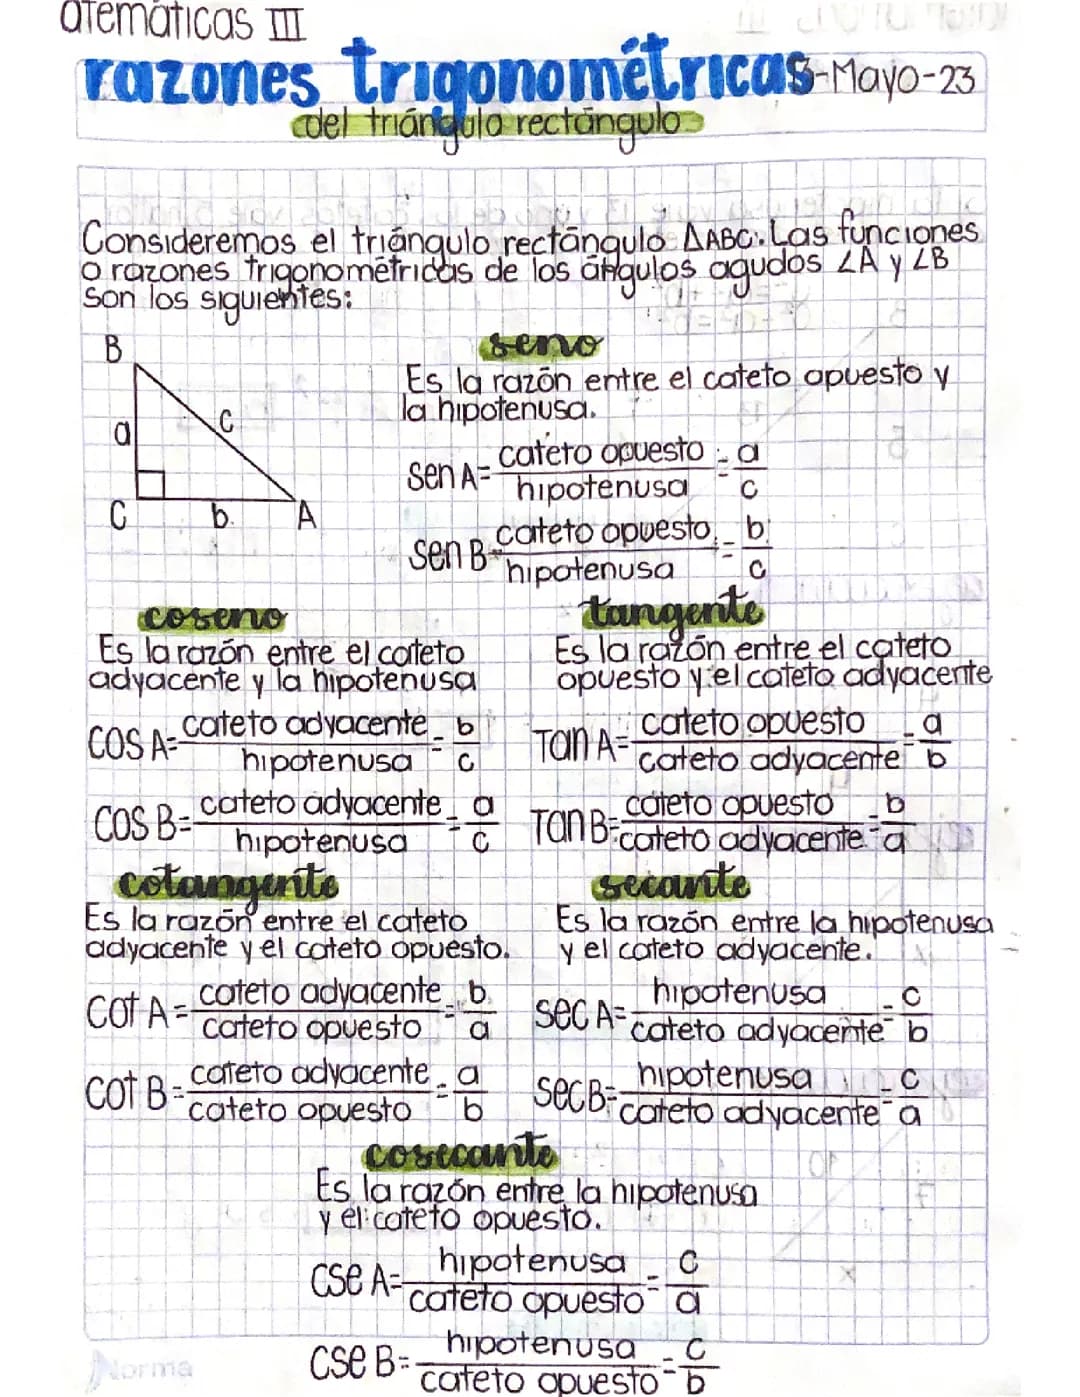 atemáticas III
razones trigonométricas
3-Mayo-23
del triángulo rectángulo
Consideremos el triángulo rectángulo ΔABC. Las funciones
o razones trigonométricas de los ángulos agudos ∠A y ∠B
son los siguientes:
B
a
c
C
b
A
seno
Es la razón entre el cateto opuesto y
la hipotenusa.
sen A= cateto opuesto / hipotenusa = a/c
sen B= cateto opuesto / hipotenusa = b/c
coseno
Es la razón entre el cateto
adyacente y la hipotenusa
COS A= cateto adyacente / hipotenusa = b/c
COS B= cateto adyacente / hipotenusa = a/c
tangente
Es la razón entre el cateto
opuesto y el cateto adyacente
Tan A= cateto opuesto / cateto adyacente = a/b
Tan B= cateto opuesto / cateto adyacente = b/a
cotangente
Es la razón entre el cateto
adyacente y el cateto opuesto.
cot A= cateto adyacente / cateto opuesto = b/a
cot B= cateto adyacente / cateto opuesto = a/b
secante
Es la razón entre la hipotenusa
y el cateto adyacente.
sec A= hipotenusa / cateto adyacente = c/b
sec B= hipotenusa / cateto adyacente = c/a
cosecante
Es la razón entre la hipotenusa
y el cateto opuesto.
cse A= hipotenusa / cateto opuesto = c/a
cse B= hipotenusa / cateto opuesto = c/b
Norma